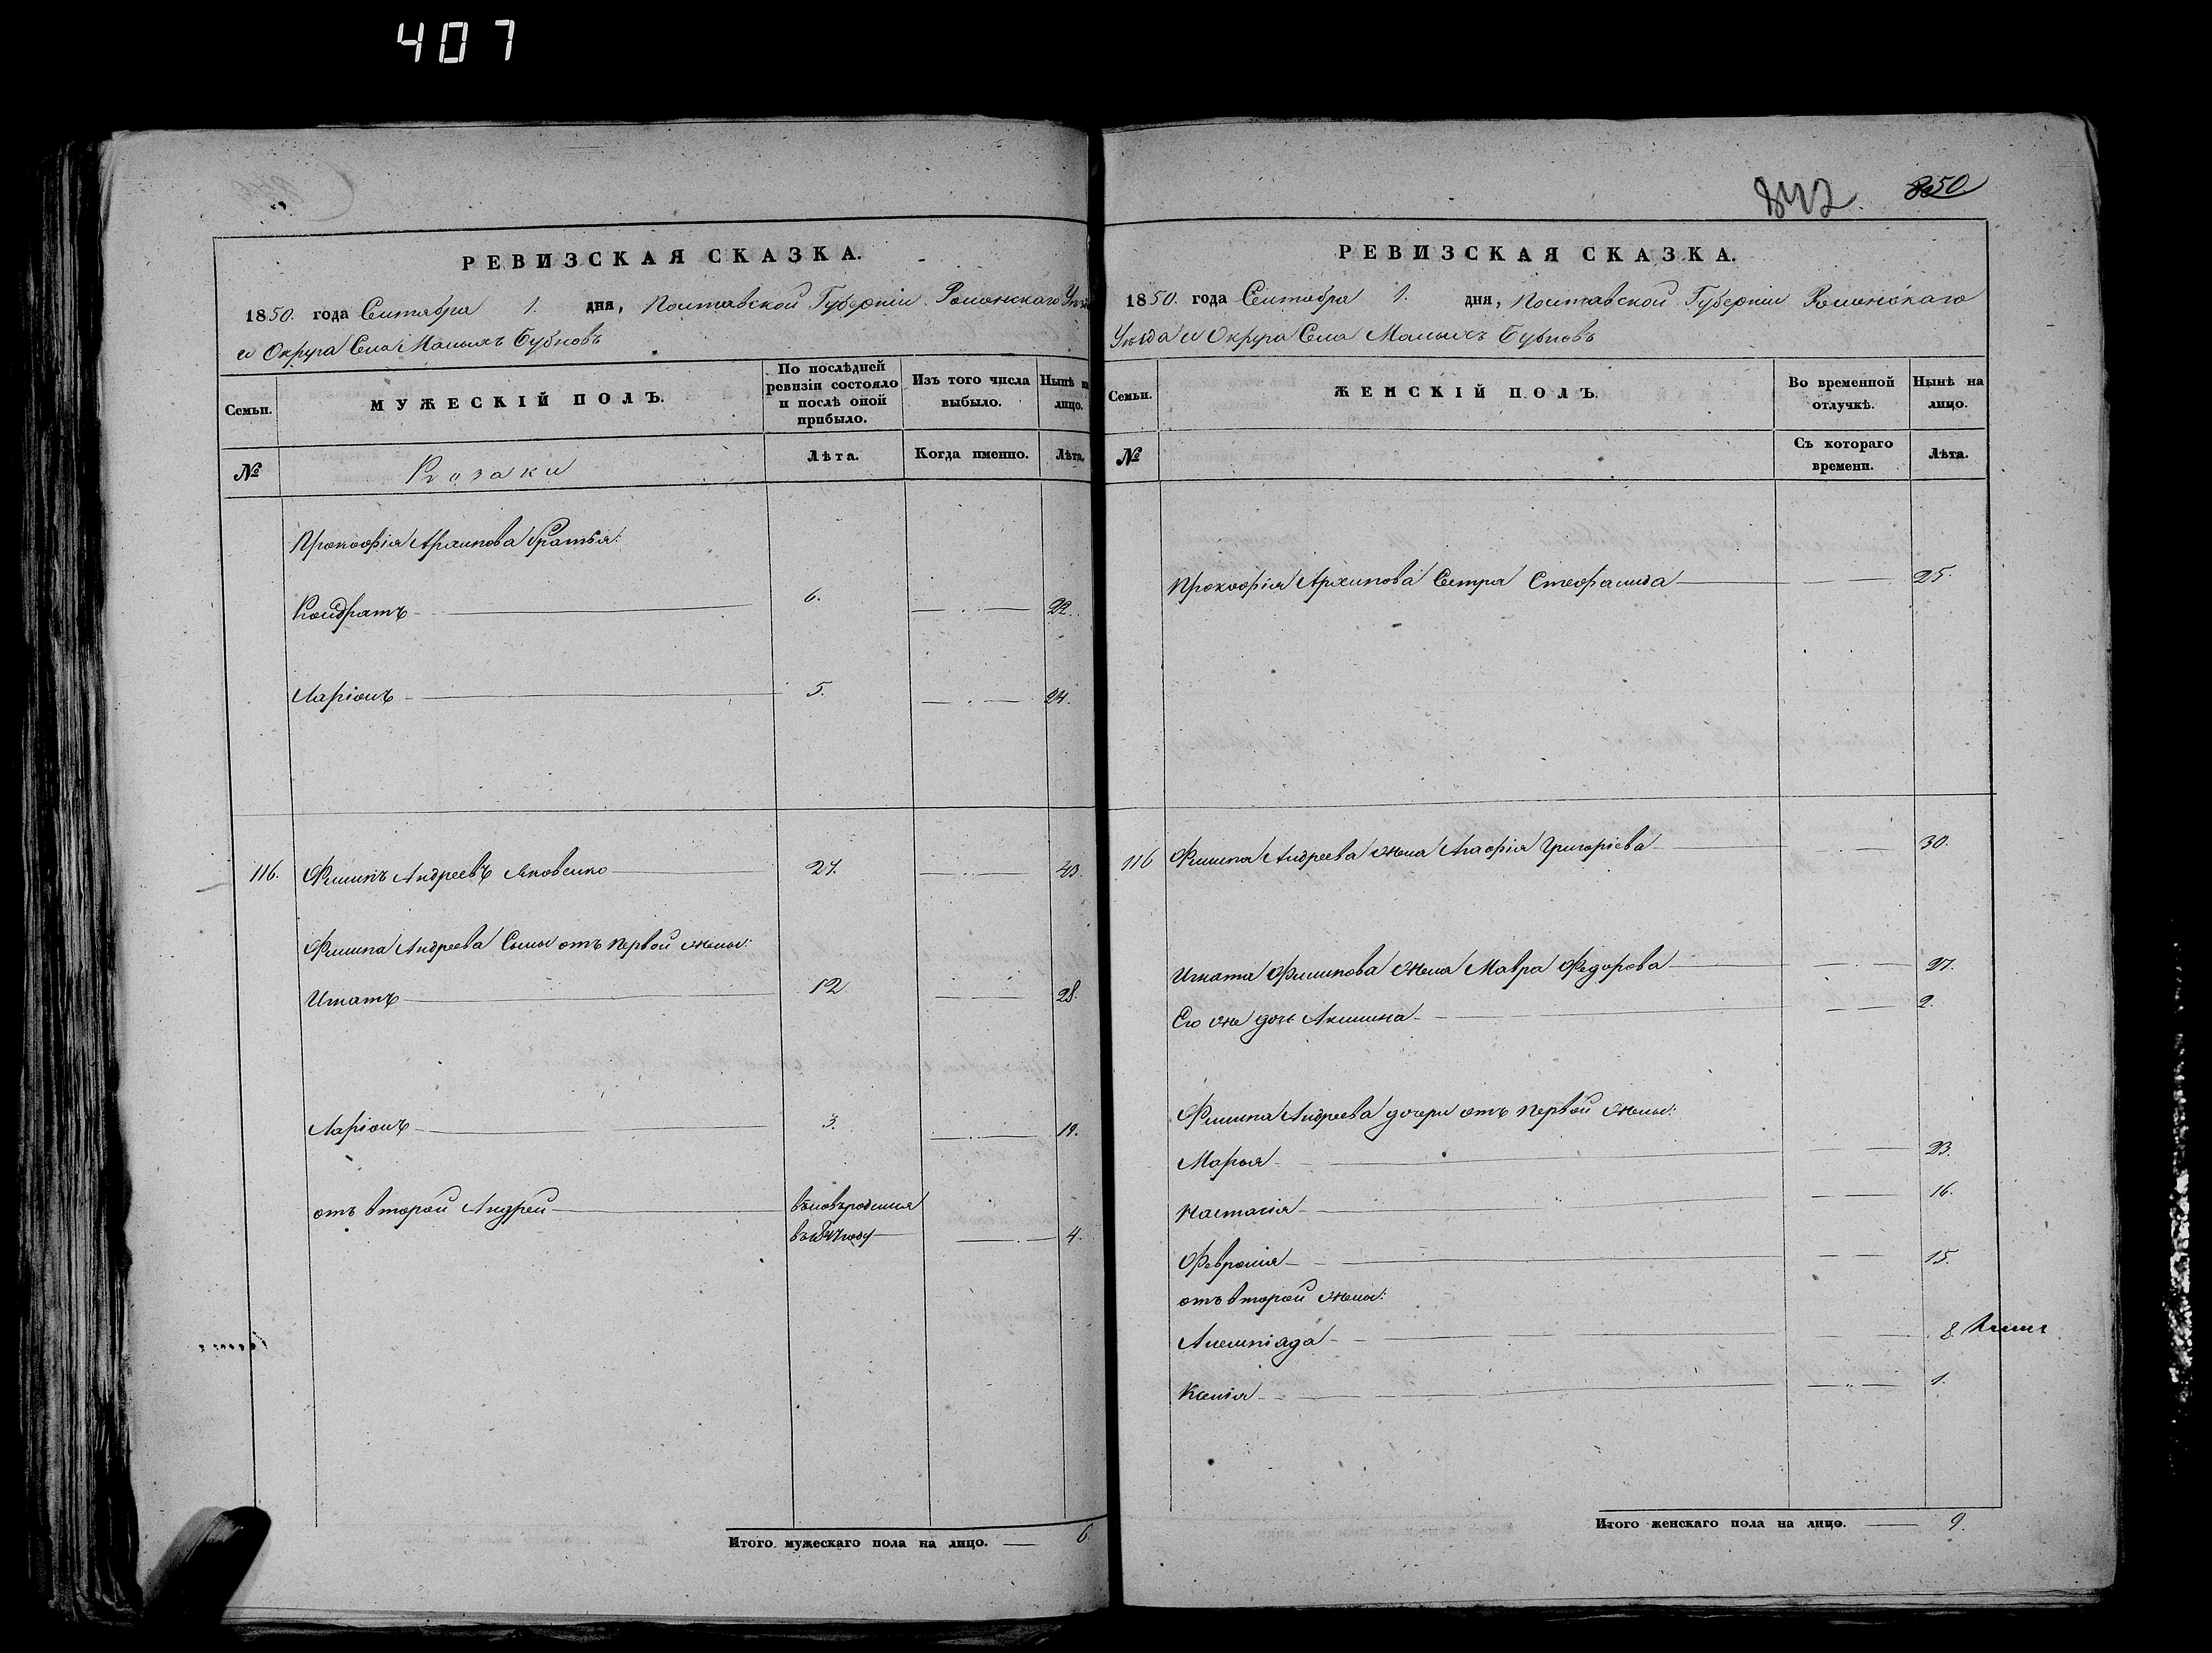 407
РЕВИЗСКАЯ СКАЗКА.
1850. года Сентября 1. дня, Полтавской Губерніи Роменскаго Уѣзда
и Округа Села Малыхъ Бубновъ
Семьи.
МУЖЕСКІЙ ПОЛЪ.
По послѣдней ревизіи состояло и послѣ оной прибыло.
Изъ того числа выбыло.
Нынѣ на лицо.
№
Козаки
Лѣта.
Когда именно.
Лѣта.
Прокофія Архипова братья:
Кондратъ 6. 22.
Ларіонъ 5. 21.
116. Филипъ Андреевъ Яковенко 27. 43.
Филипа Андреева Сыны отъ первой жены:
Игнатъ 12 28.
Ларіонъ 3. 19.
отъ второй Андрей
въ 4.
Итого мужескаго пола на лицо. 6.
842. 850
РЕВИЗСКАЯ СКАЗКА.
1850. года Сентября 1. дня, Полтавской Губерніи Роменскаго
Уѣзда и Округа Села Малыхъ Бубновъ
Семьи.
ЖЕНСКІЙ ПОЛЪ.
Во временной отлучкѣ.
Нынѣ на лицо.
№
Съ котораго времени.
Лѣта.
Прокофія Архипова Сестра Стефанида 25.
116 Филипа Андреева жена Агафія Григоріева 30.
Игната Филипова жена Мавра Федорова 27.
Его же дочь Акилина 2.
Филипа Андреева дочери отъ первой жены:
Марья 23.
Настасія 16.
Февронія 15.
отъ второй жены:
Алемпіяда 8.
Ксенія 1.
Итого женскаго пола на лицо. 9.